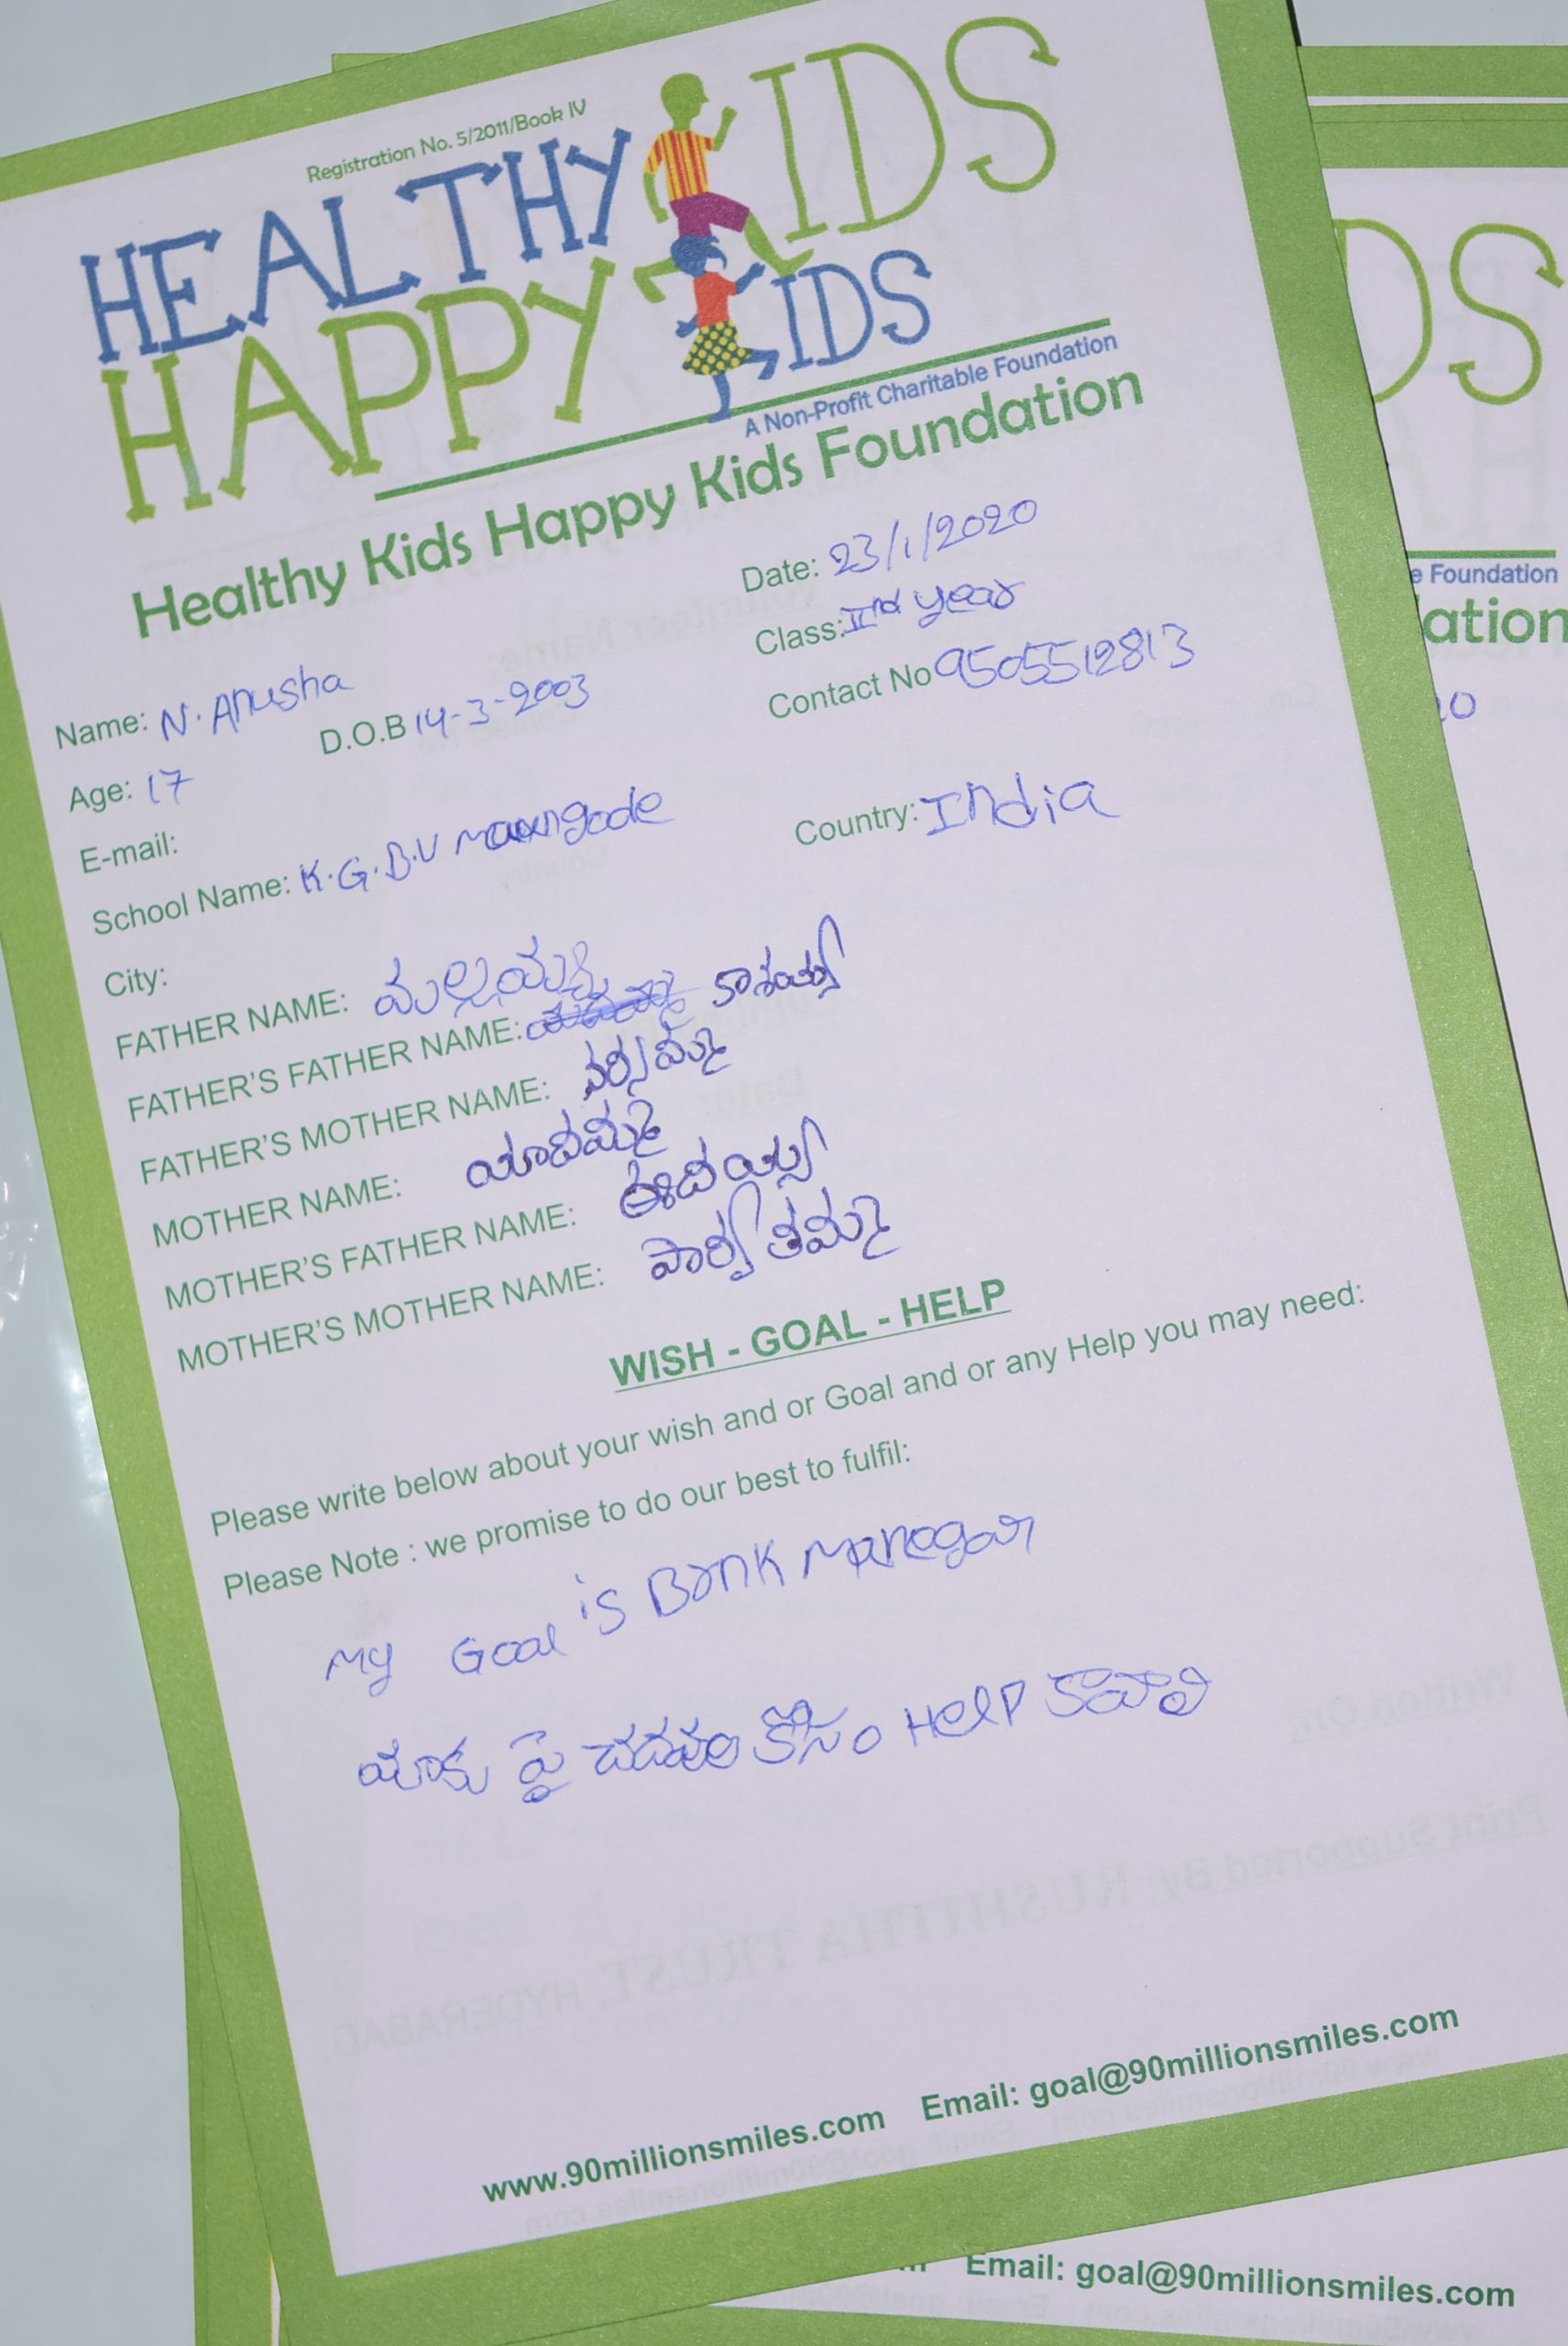 Registration No. 5/2011/Book IV
HEALTHY KIDS
HAPPY KIDS
A Non-Profit Charitable Foundation
Healthy Kids Happy Kids Foundation
Date: 23/1/2020
Name: N. Anusha
Class: IInd year
Age: 17 D.O.B 14-3-2003
Contact No 9505512813
E-mail:
School Name: K.G.B.V
Country: India
City:
FATHER NAME: మల్లయ్య
FATHER'S FATHER NAME: కాశయ్య
FATHER'S MOTHER NAME: నర్సమ్మ
MOTHER NAME: యాదమ్మ
MOTHER'S FATHER NAME: ఈదయ్య
MOTHER'S MOTHER NAME: పార్వతమ్మ
WISH - GOAL - HELP
Please write below about your wish and or Goal and or any Help you may need:
Please Note : we promise to do our best to fulfil:
My Goal is Bank Manegar
మాకు పై చదవుల కోసం Help కావాలి
www.90millionsmiles.com Email: goal@90millionsmiles.com
DS
e Foundation
ation
Email: goal@90millionsmiles.com